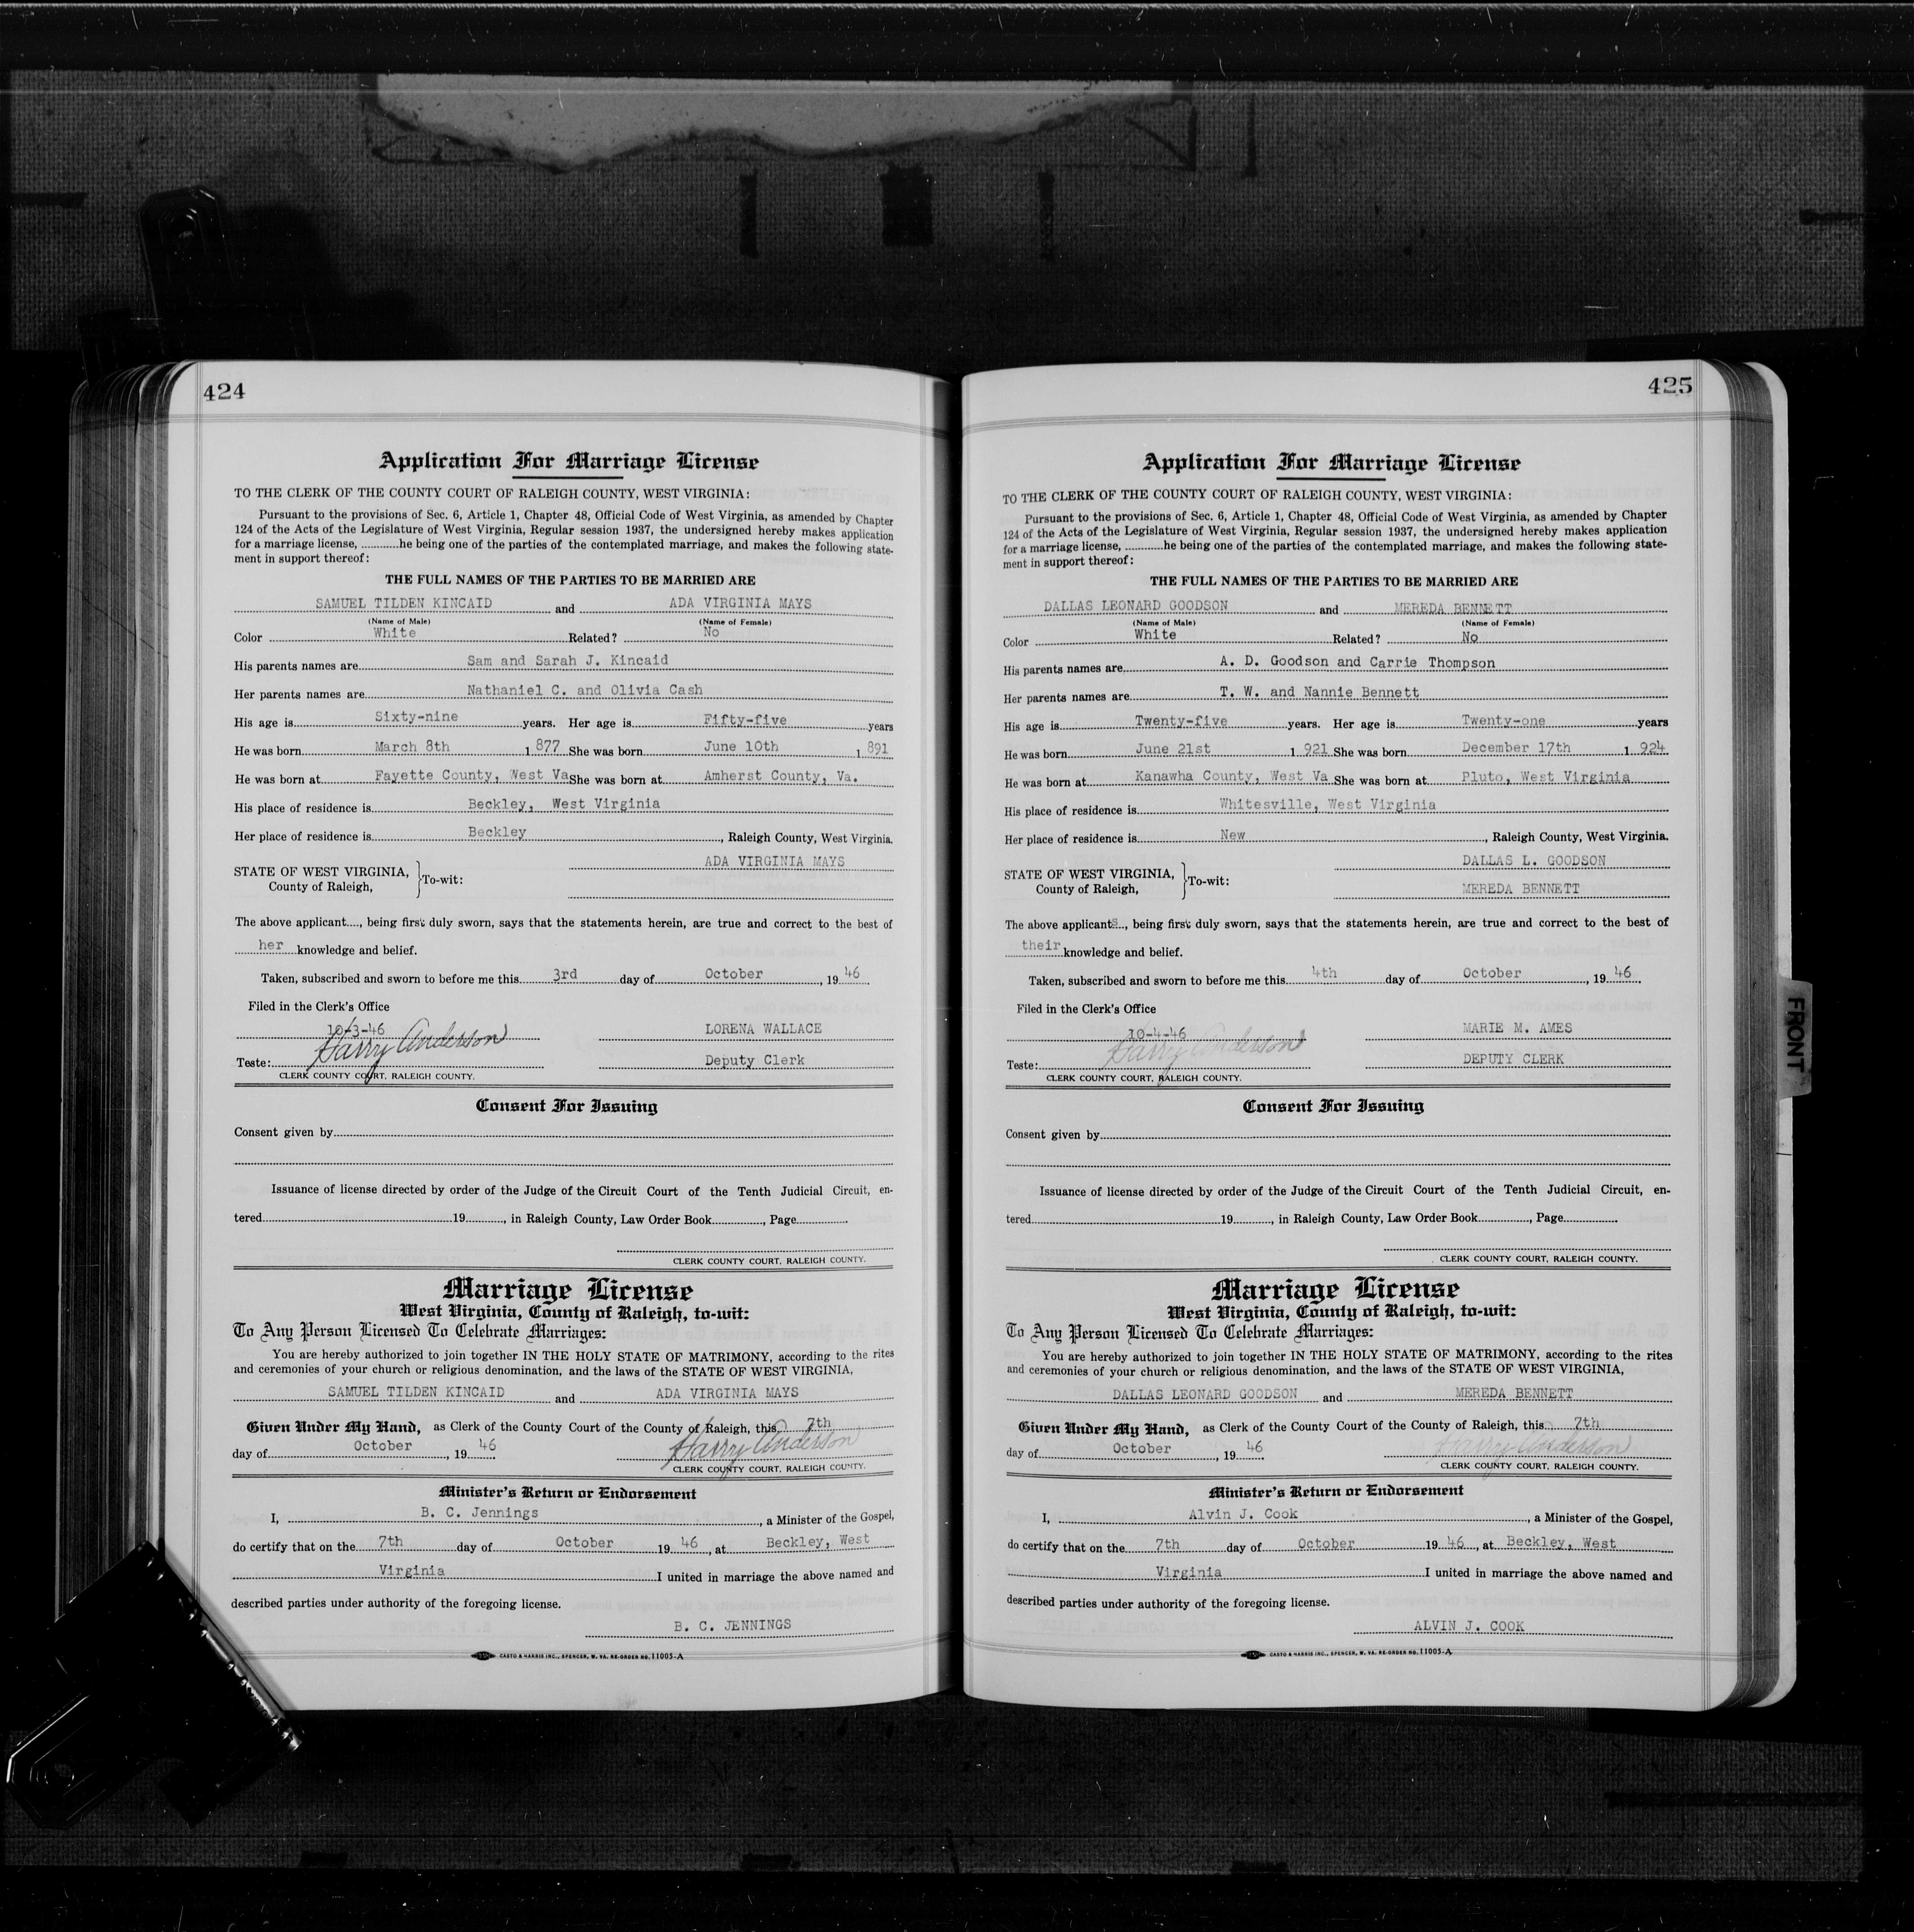 424
Application For Marriage License
TO THE CLERK OF THE COUNTY COURT OF RALEIGH COUNTY, WEST VIRGINIA:
Pursuant to the provisions of Sec. 6, Article 1, Chapter 48, Official Code of West Virginia, as amended by Chapter
124 of the Acts of the Legislature of West Virginia, Regular session 1937, the undersigned hereby makes application
for a marriage license, ............he being one of the parties of the contemplated marriage, and makes the following state-
ment in support thereof:
THE FULL NAMES OF THE PARTIES TO BE MARRIED ARE
SAMUEL TILDEN KINCAID and ADA VIRGINIA MAYS
(Name of Male) (Name of Female)
Color White Related? No
His parents names are Sam and Sarah J. Kincaid
Her parents names are Nathaniel C. and Olivia Cash
His age is Sixty-nine years. Her age is Fifty-five years
He was born March 8th 1 877 She was born June 10th 1 891
He was born at Fayette County, West Va She was born at Amherst County, Va.
His place of residence is Beckley, West Virginia
Her place of residence is Beckley, Raleigh County, West Virginia.
ADA VIRGINIA MAYS
STATE OF WEST VIRGINIA,
County of Raleigh, } To-wit:
The above applicant...., being first duly sworn, says that the statements herein, are true and correct to the best of
her knowledge and belief.
Taken, subscribed and sworn to before me this 3rd day of October, 19 46.
Filed in the Clerk's Office
10-3-46 LORENA WALLACE
Teste: Harry Anderson Deputy Clerk
CLERK COUNTY COURT, RALEIGH COUNTY.
Consent For Issuing
Consent given by
Issuance of license directed by order of the Judge of the Circuit Court of the Tenth Judicial Circuit, en-
tered 19 , in Raleigh County, Law Order Book , Page
CLERK COUNTY COURT, RALEIGH COUNTY.
Marriage License
West Virginia, County of Raleigh, to-wit:
To Any Person Licensed To Celebrate Marriages:
You are hereby authorized to join together IN THE HOLY STATE OF MATRIMONY, according to the rites
and ceremonies of your church or religious denomination, and the laws of the STATE OF WEST VIRGINIA,
SAMUEL TILDEN KINCAID and ADA VIRGINIA MAYS
Given Under My Hand, as Clerk of the County Court of the County of Raleigh, this 7th
day of October, 19 46. Harry Anderson
CLERK COUNTY COURT, RALEIGH COUNTY.
Minister's Return or Endorsement
I, B. C. Jennings, a Minister of the Gospel,
do certify that on the 7th day of October 19 46, at Beckley, West
Virginia I united in marriage the above named and
described parties under authority of the foregoing license.
B. C. JENNINGS
CASTO & HARRIS INC., SPENCER, W. VA. RE-ORDER NO. 11005-A
425
Application For Marriage License
TO THE CLERK OF THE COUNTY COURT OF RALEIGH COUNTY, WEST VIRGINIA:
Pursuant to the provisions of Sec. 6, Article 1, Chapter 48, Official Code of West Virginia, as amended by Chapter
124 of the Acts of the Legislature of West Virginia, Regular session 1937, the undersigned hereby makes application
for a marriage license, ............he being one of the parties of the contemplated marriage, and makes the following state-
ment in support thereof:
THE FULL NAMES OF THE PARTIES TO BE MARRIED ARE
DALLAS LEONARD GOODSON and MEREDA BENNETT
(Name of Male) (Name of Female)
Color White Related? No
His parents names are A. D. Goodson and Carrie Thompson
Her parents names are T. W. and Nannie Bennett
His age is Twenty-five years. Her age is Twenty-one years
He was born June 21st 1 921 She was born December 17th 1 924
He was born at Kanawha County, West Va She was born at Pluto, West Virginia
His place of residence is Whitesville, West Virginia
Her place of residence is New, Raleigh County, West Virginia.
DALLAS L. GOODSON
STATE OF WEST VIRGINIA,
County of Raleigh, } To-wit:
MEREDA BENNETT
The above applicants..., being first duly sworn, says that the statements herein, are true and correct to the best of
their knowledge and belief.
Taken, subscribed and sworn to before me this 4th day of October, 19 46.
Filed in the Clerk's Office
10-4-46 MARIE M. AMES
Teste: Harry Anderson DEPUTY CLERK
CLERK COUNTY COURT, RALEIGH COUNTY.
Consent For Issuing
Consent given by
Issuance of license directed by order of the Judge of the Circuit Court of the Tenth Judicial Circuit, en-
tered 19 , in Raleigh County, Law Order Book , Page
CLERK COUNTY COURT, RALEIGH COUNTY.
Marriage License
West Virginia, County of Raleigh, to-wit:
To Any Person Licensed To Celebrate Marriages:
You are hereby authorized to join together IN THE HOLY STATE OF MATRIMONY, according to the rites
and ceremonies of your church or religious denomination, and the laws of the STATE OF WEST VIRGINIA,
DALLAS LEONARD GOODSON and MEREDA BENNETT
Given Under My Hand, as Clerk of the County Court of the County of Raleigh, this 7th
day of October, 19 46. Harry Anderson
CLERK COUNTY COURT, RALEIGH COUNTY.
Minister's Return or Endorsement
I, Alvin J. Cook, a Minister of the Gospel,
do certify that on the 7th day of October 19 46, at Beckley, West
Virginia I united in marriage the above named and
described parties under authority of the foregoing license.
ALVIN J. COOK
CASTO & HARRIS INC., SPENCER, W. VA. RE-ORDER NO. 11005-A
FRONT